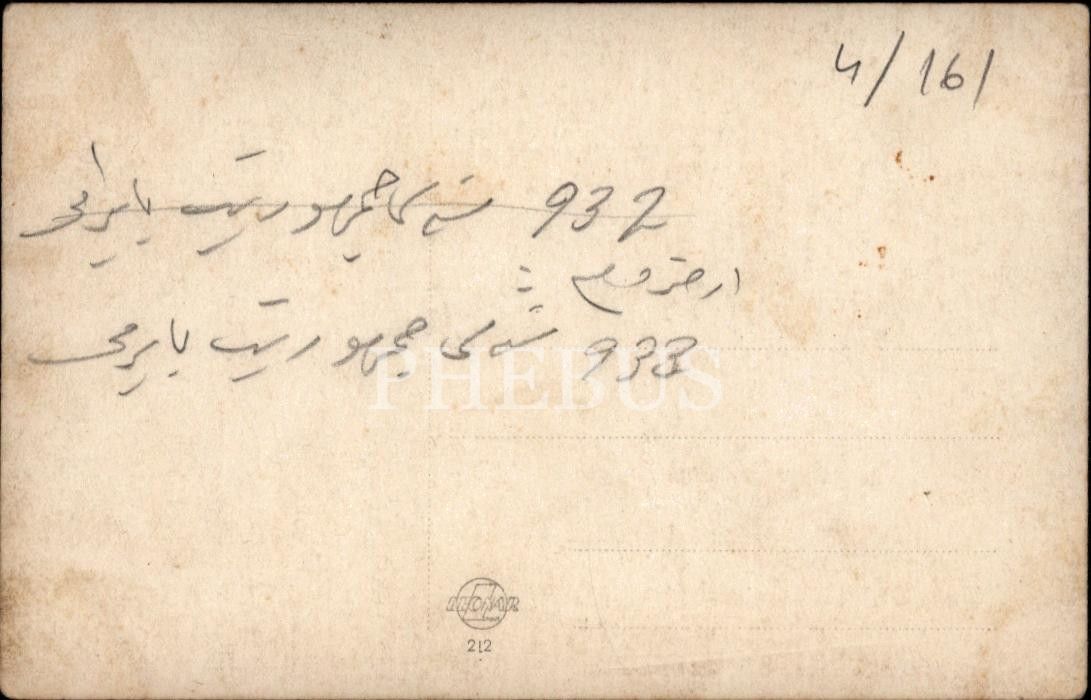 4/161
932 سنه سی جمهوریت بایرامی
ارضروم :
933 سنه سی جمهوریت بایرامی
PHEBUS
212